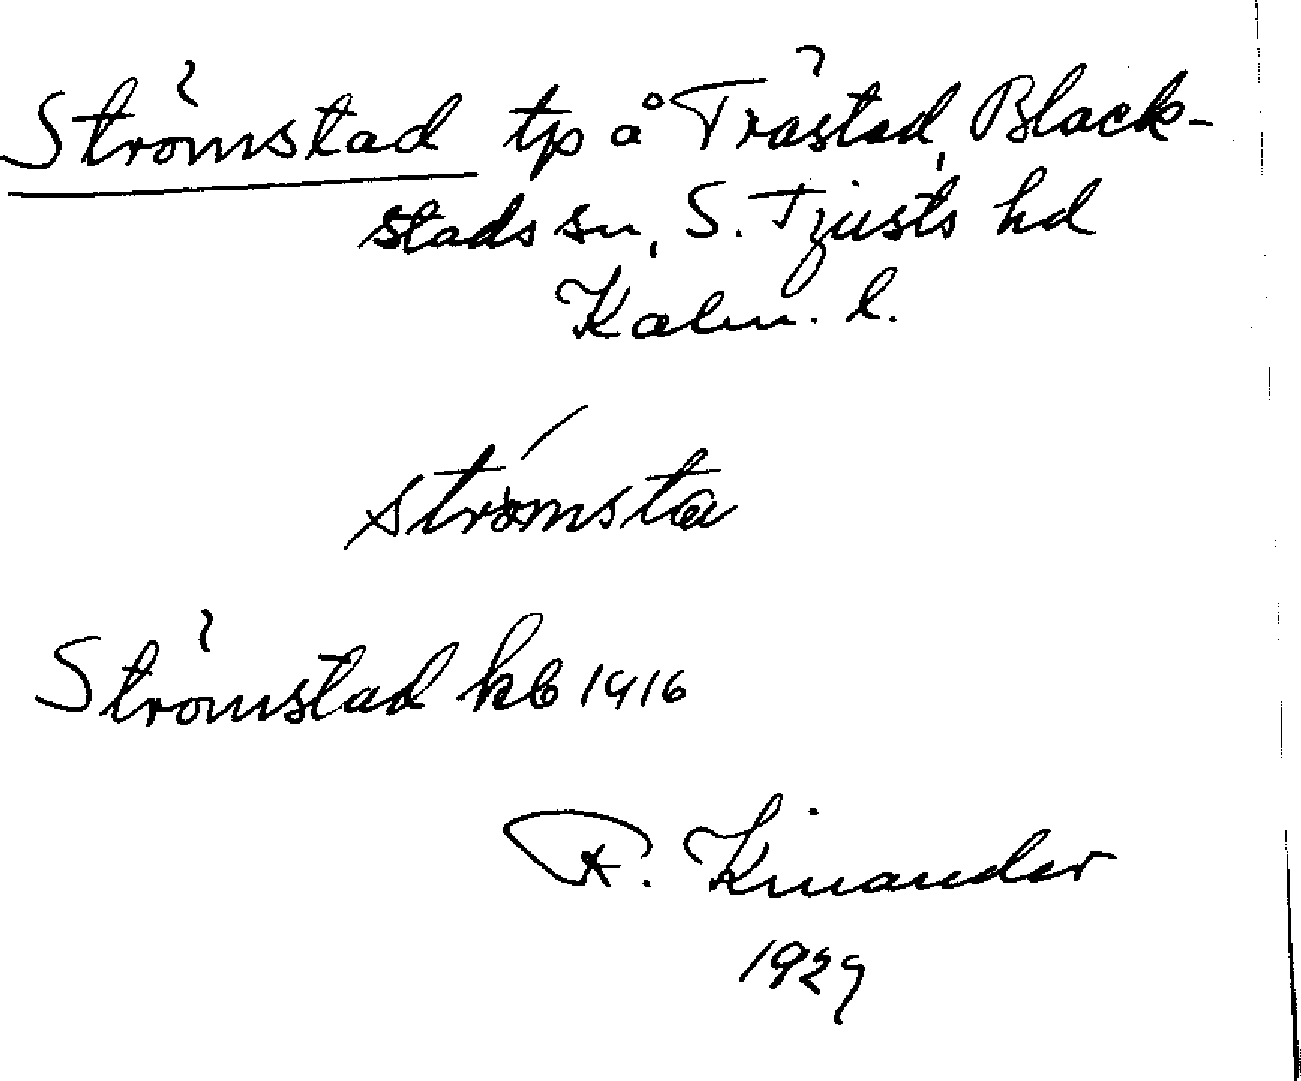 Strömstad tp å Tråstad, Black-
stads sn, S. Tjusts hd
Kalm. l.
strömsta
Strömstad kb 1916
R. Kinander
1929